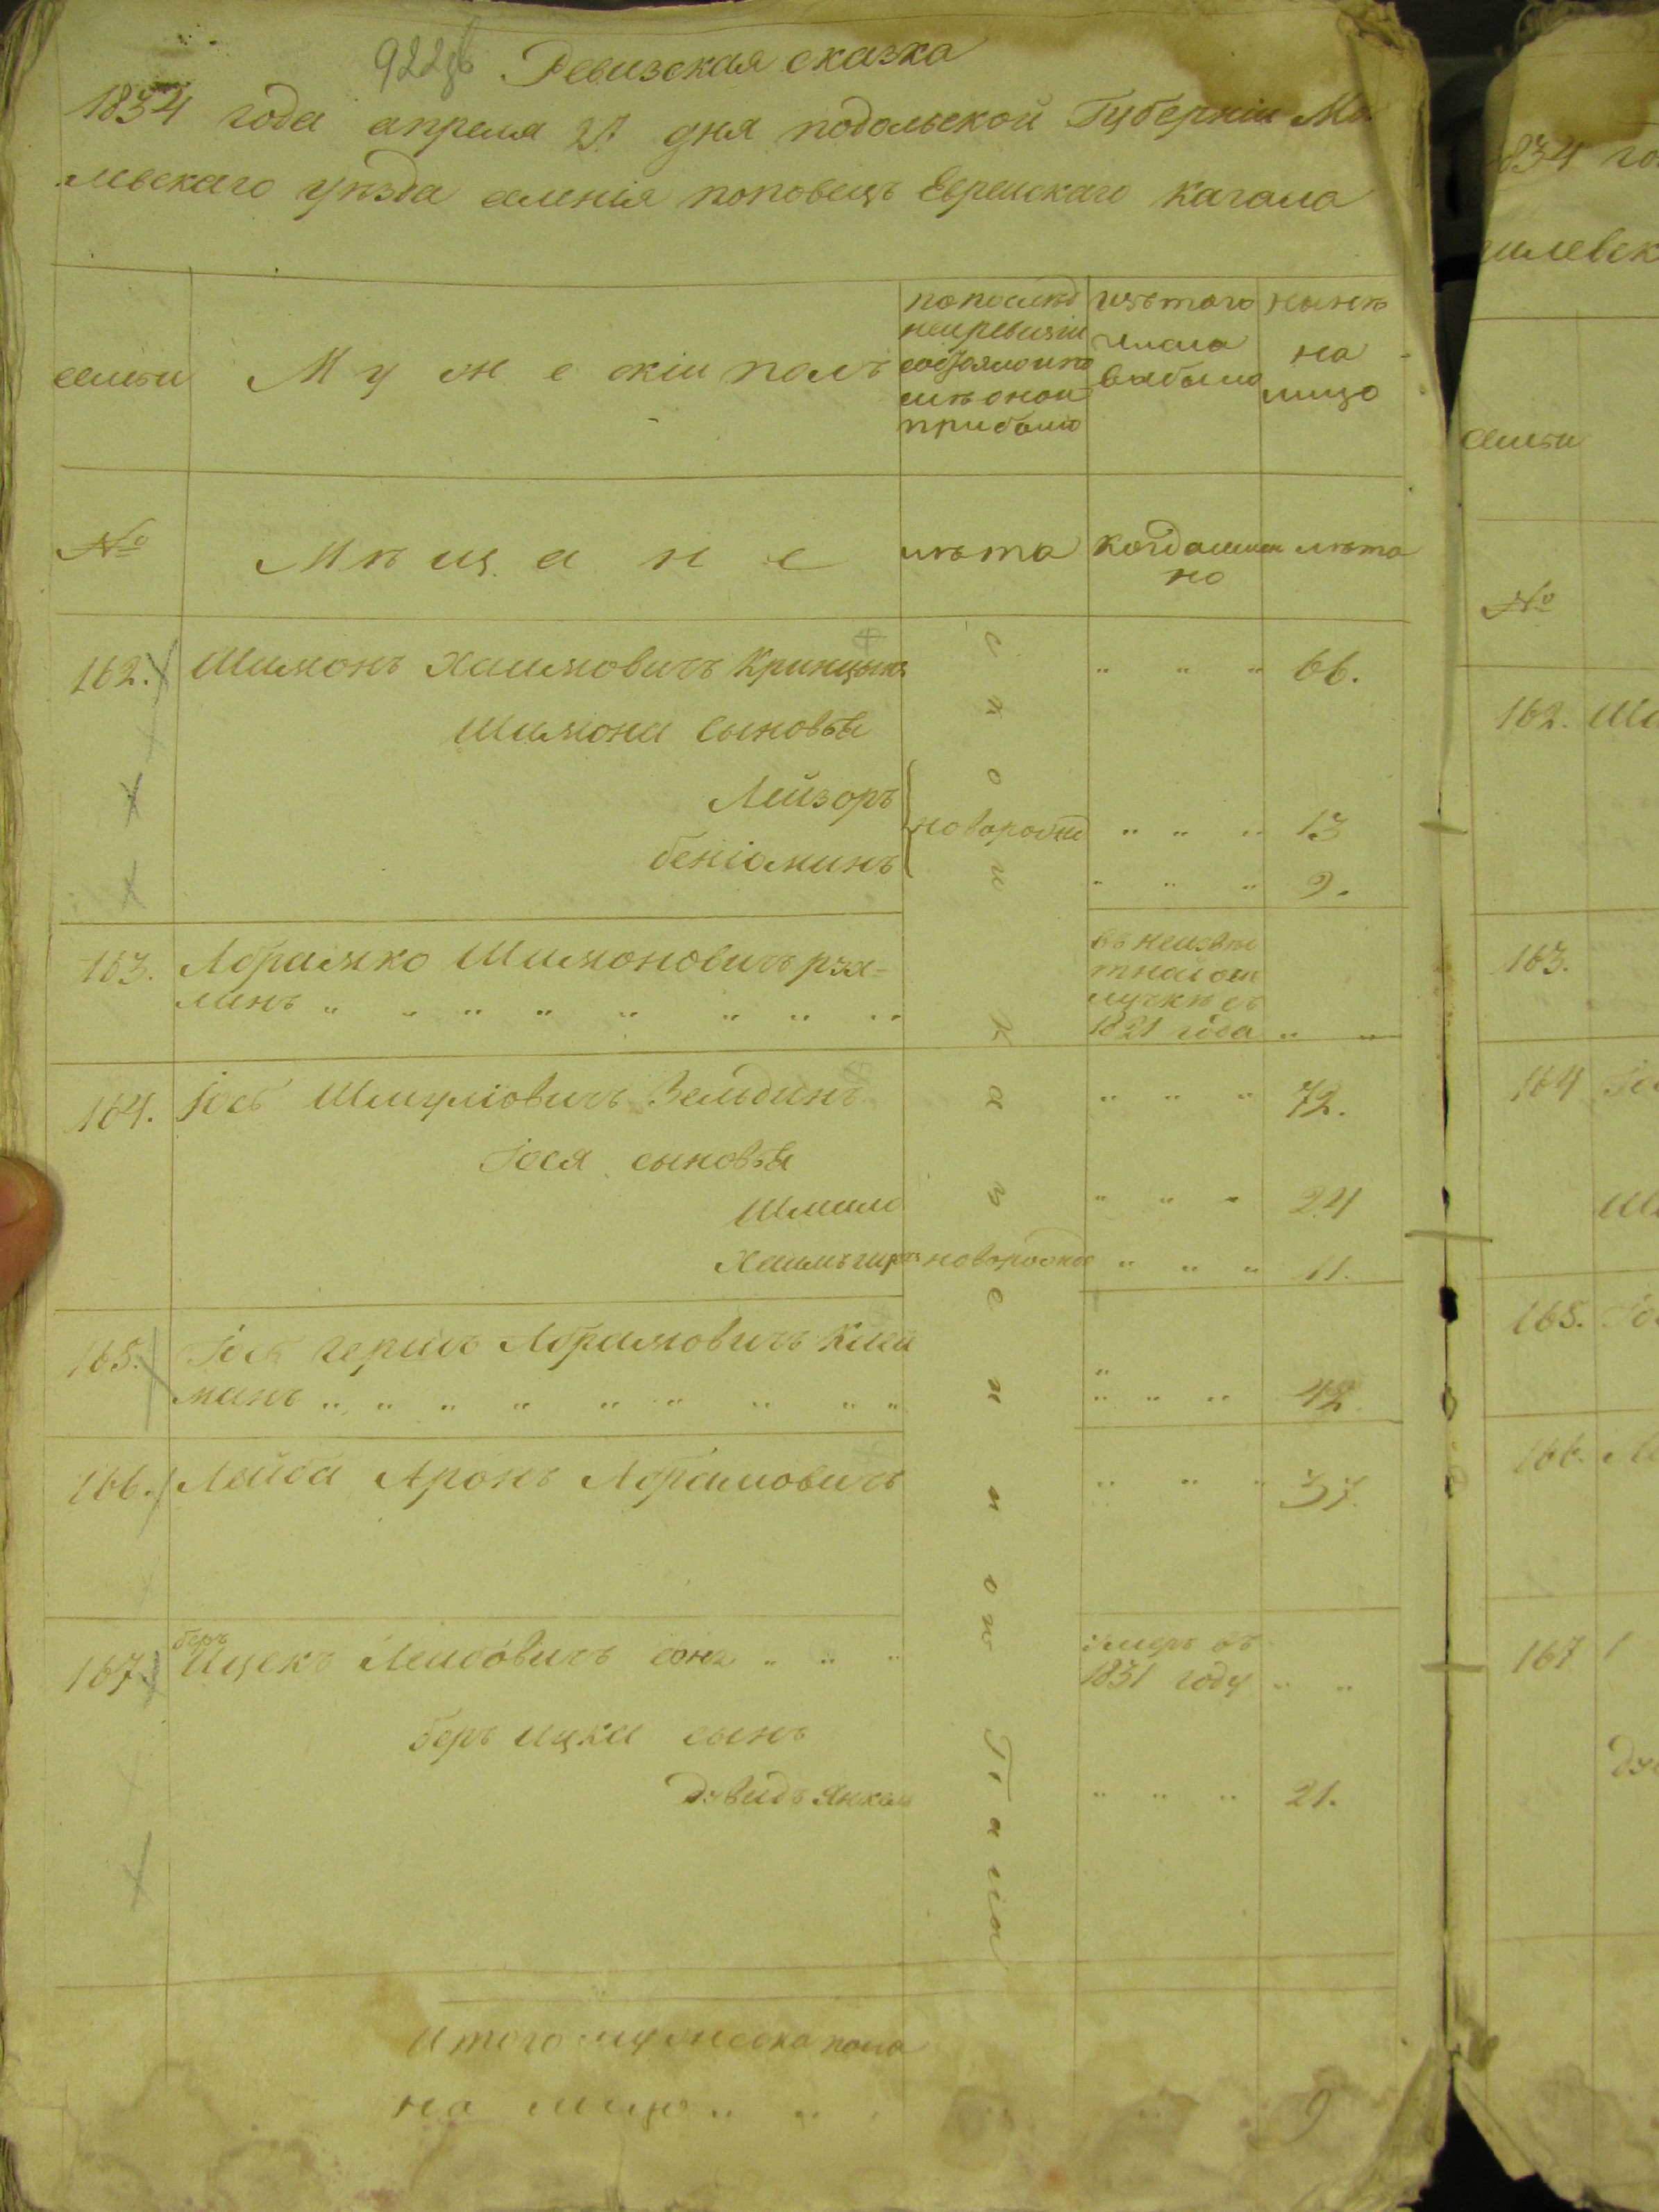 922
Ревизская сказка
1834 года апреля 27 дня подольской Губернiи Мо
левскаго уѣзда селенiя поповецъ Еврейскаго Кагала
семьи
М у ж е скiи полъ
попослѣд
ней ревизiи
состояло и по
слѣ оной
прибыло
изъ того
числа
выбыло
нынѣ
на
лицо
№
М ѣ щ а н е
лѣта
Когда имен
но
лѣта
162. Шимонъ Хаимовичъ " " " 66.
Шимона сыновья
Лейзоръ новорожде " " " 13
бенiоминъ " " " 9.
163. Абрамко Шимоновичъ
линъ " " " " " " " "
въ неизвѣс
тной от
лучкѣ съ
1821 года " "
164. Iось Шмулiовичъ Зельдинъ " " " 72.
Iося сыновья
Шмило " " " 24
новорожде " " " 11.
165. Iось гершъ Абрамовичъ Клей
манъ " " " " " " " " " " " " 42
166. Лейба Аронъ Абрамовичъ " " " 37.
беръ
167. Ицекъ Лейбовичъ " " "
умеръ въ
1831 году " "
беръ ицка сынъ
Дувидъ Янкель " " " 21.
с к о и к а з е н н о ю
Итого мужеска пола
на лицо " " 9
834 го
гилевск
семьи
№
162. Ши
163.
164 Iо
Шм
165. Iо
166. Ле
167
Ду